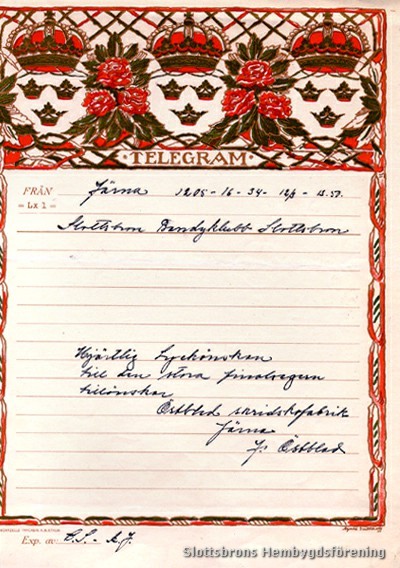 TELEGRAM
FRÅN Järna 1205 - 16 - 34 - 12/3 - 13.57.
= Lx 1 =
Slottsbron Bandyklubb Slottsbron
Hjärtlig Lyckönskan
till den stora finalsegern
tillönskar
Östblad skridskofabrik
Järna
Östblad
Exp. av:
Slottsbrons Hembygdsförening